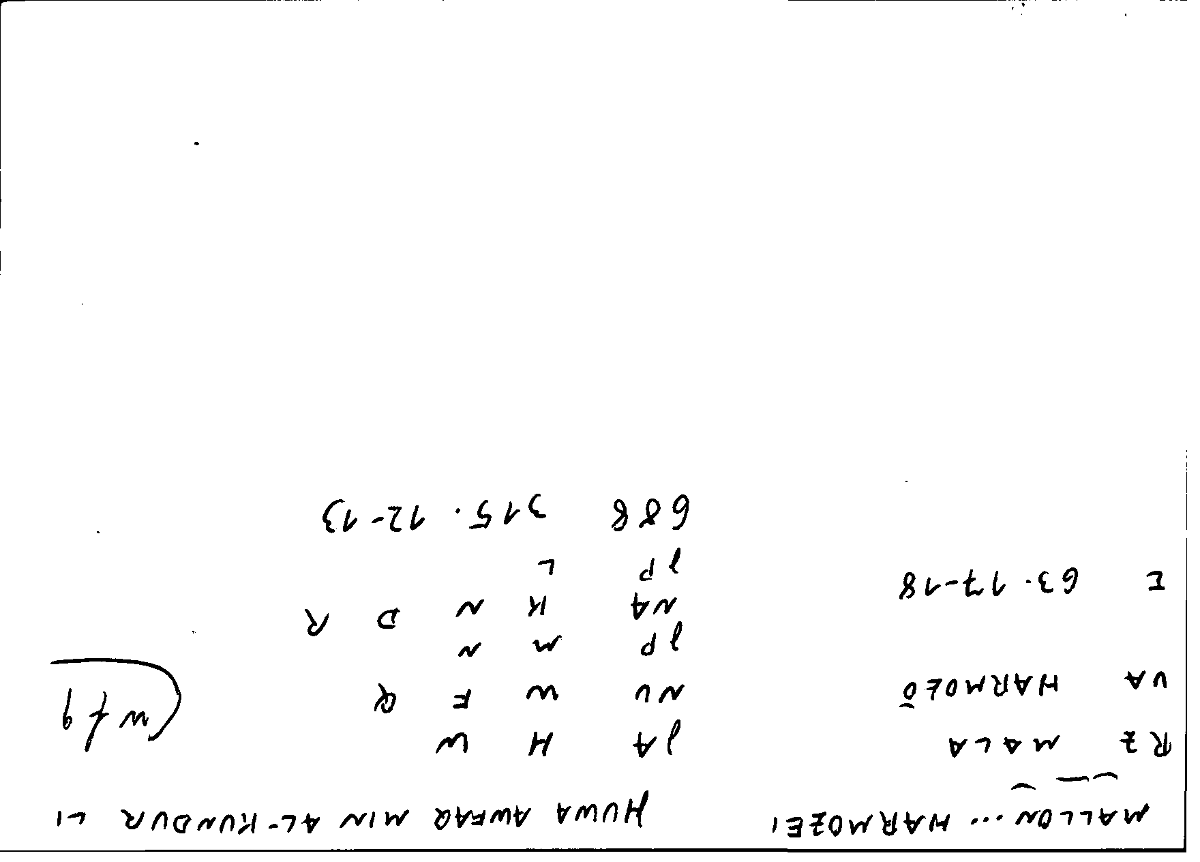 MALLON ... HARMOZEI HUWA AWFAQ MIN AL-KUNDUR LI
RZ MALA JA H W wfq
VA HARMOZŌ NU W F Q
JP M N
NA K N D R
I 63.17-18 JP L
688 315.12-13